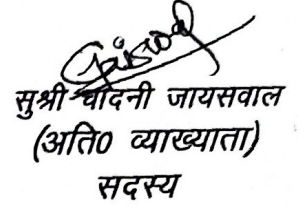 सुश्री चाँदनी जायसवाल
(अति० व्याख्याता)
सदस्य